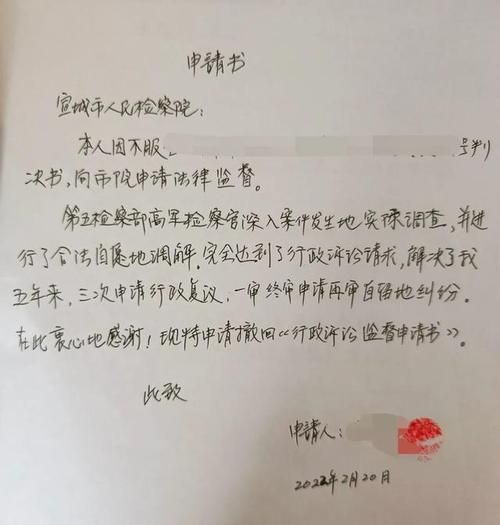 申請书
宣城市人民检察院：
本人因不服 号判
决书，向市院申请法律监督。
第五检察部高军检察官深入案件发生地实际调查，并进
行了合法自愿地调解。完全达到了行政诉讼请求，解决了我
五年来，三次申请行政复议，一审终审申请再审自留地纠纷。
在此衷心地感谢！现特申请撤回《行政诉讼监督申请书》。
此致
申請人：
2022年2月20日